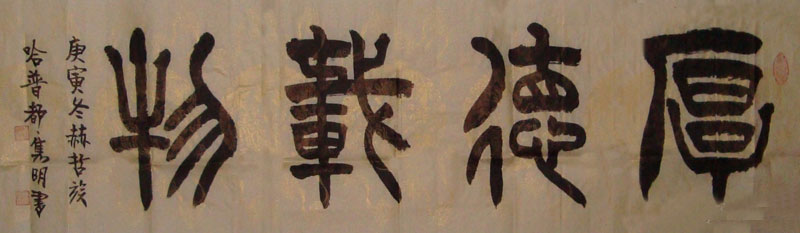 厚德載物
庚寅冬赫哲族
哈普都·隽明書